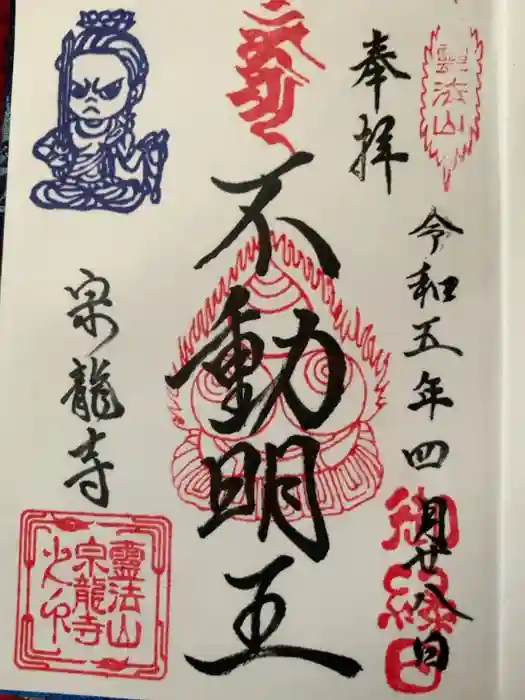 霊法山
奉拝
令和五年四月廿八日
御縁日
不動明王
宗龍寺
霊法山
宗龍寺
之印